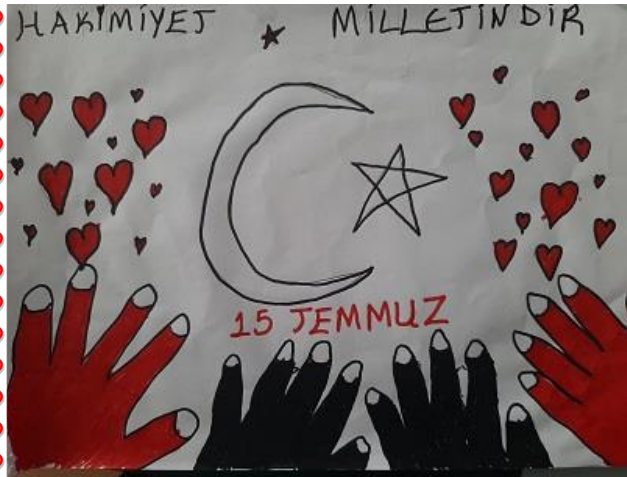 HAKİMİYET ★ MİLLETİNDİR
15 TEMMUZ